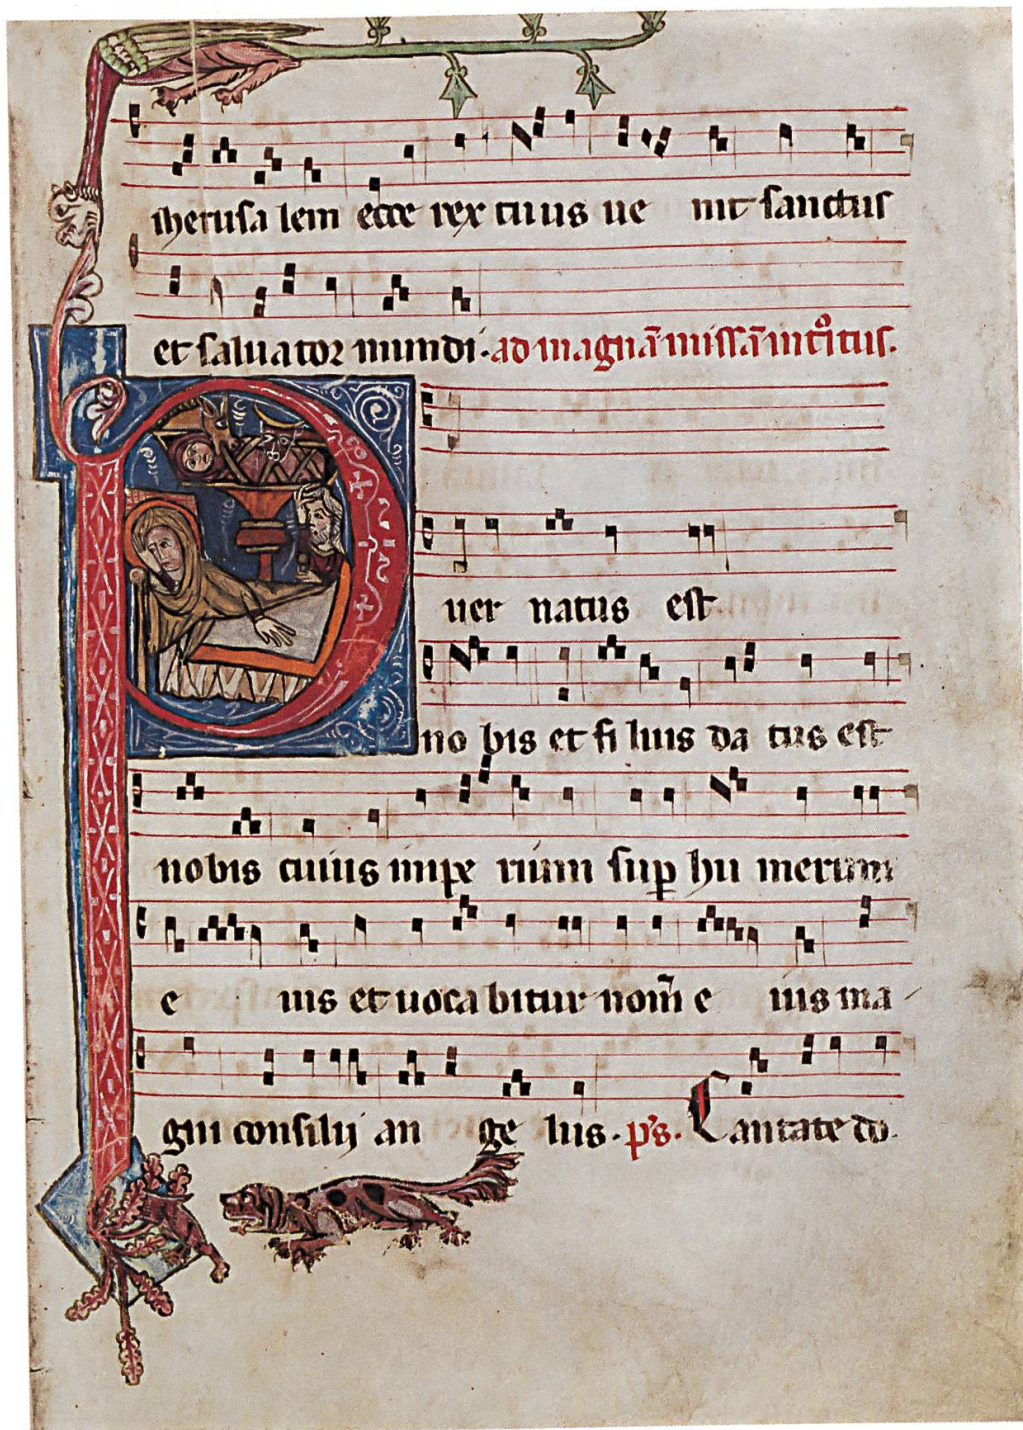 iherusa lem ecce rex tuus ue nit sanctus
et saluator mundi. ad magnā missā introitus.
P
uer natus est
no bis et fi lius da tus est
nobis cuius impe rium sup hu merum
e ius et uoca bitur nom̄ e ius ma
gni consilij an ge lus. ps. Cantate do.